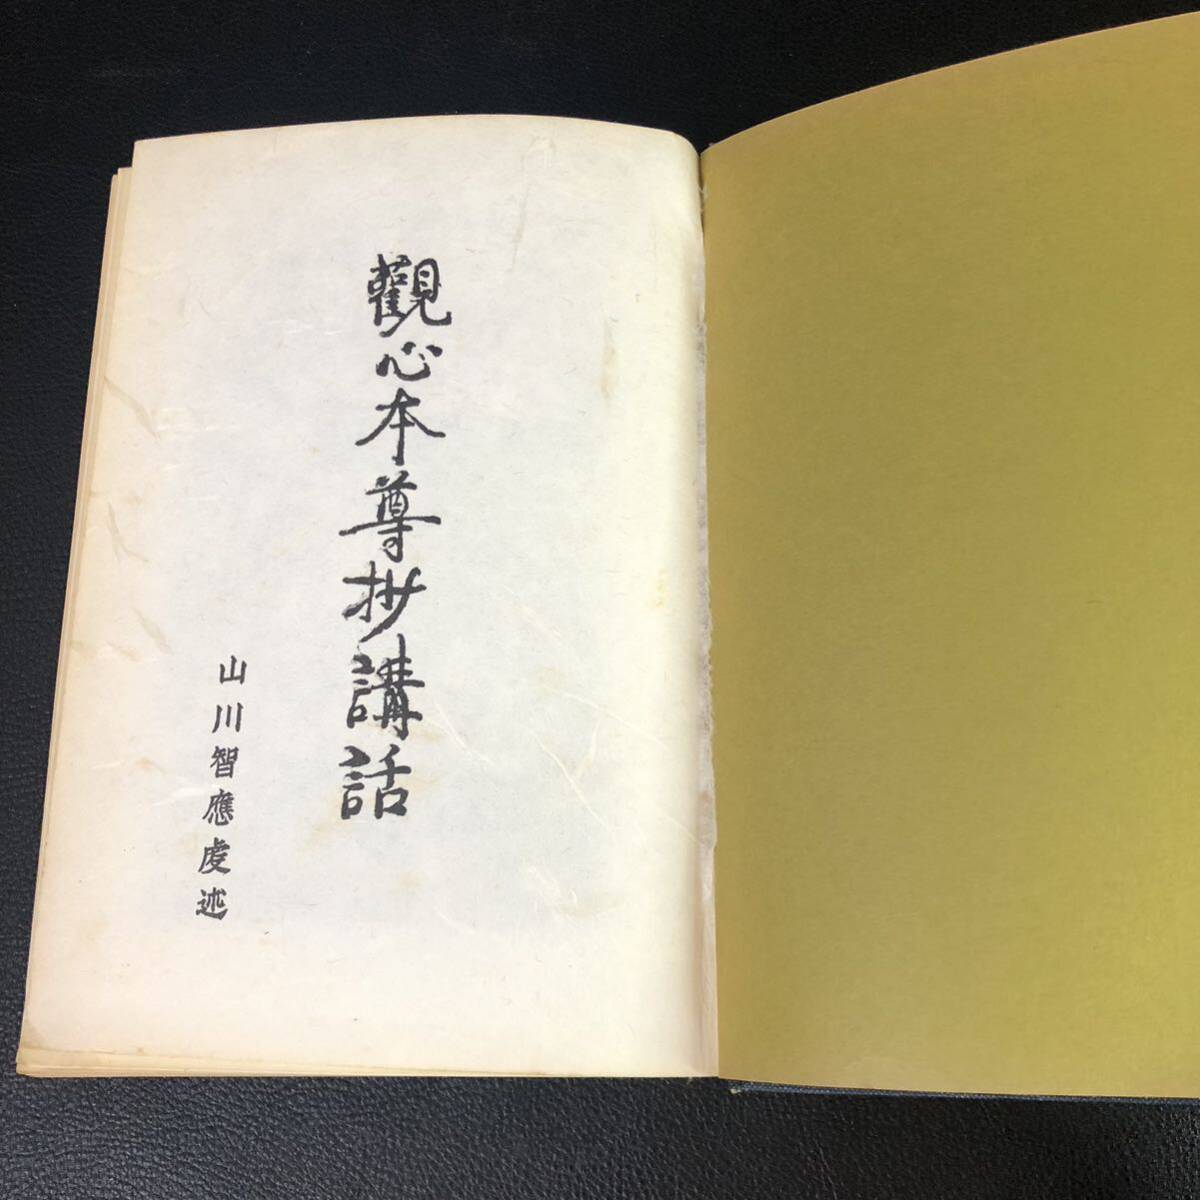 觀心本尊抄講話
山川智應虔述